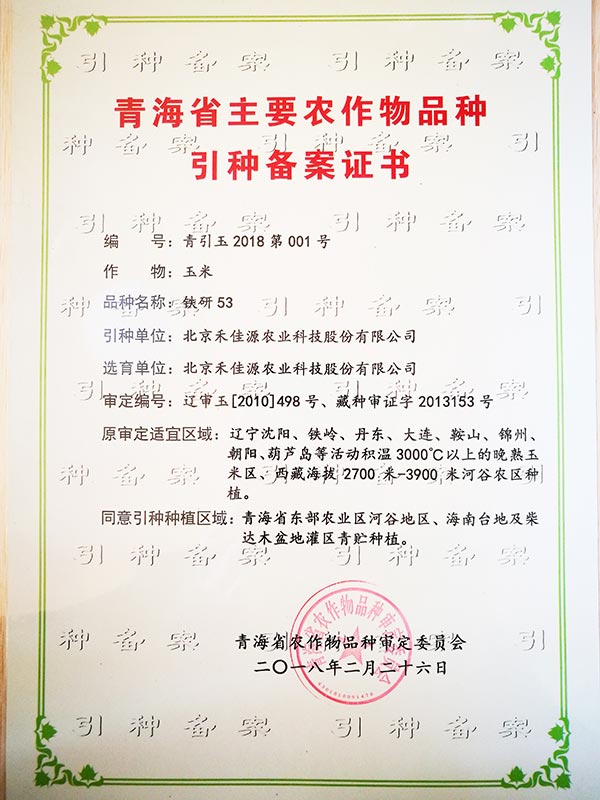 青海省主要农作物品种
引种备案证书
编 号：青引玉2018第001号
作 物：玉米
品种名称：铁研53
引种单位：北京禾佳源农业科技股份有限公司
选育单位：北京禾佳源农业科技股份有限公司
审定编号：辽审玉[2010]498号、藏种审证字2013153号
原审定适宜区域：辽宁沈阳、铁岭、丹东、大连、鞍山、锦州、
朝阳、葫芦岛等活动积温3000℃以上的晚熟玉
米区、西藏海拔2700米-3900米河谷农区种
植。
同意引种种植区域：青海省东部农业区河谷地区、海南台地及柴
达木盆地灌区青贮种植。
青海省农作物品种审定委员会
二〇一八年二月二十六日